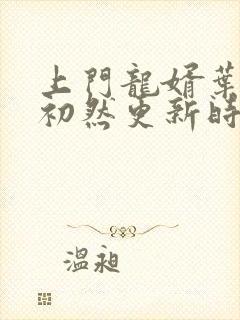 上門龍婿葉
初然更新時
溫昶